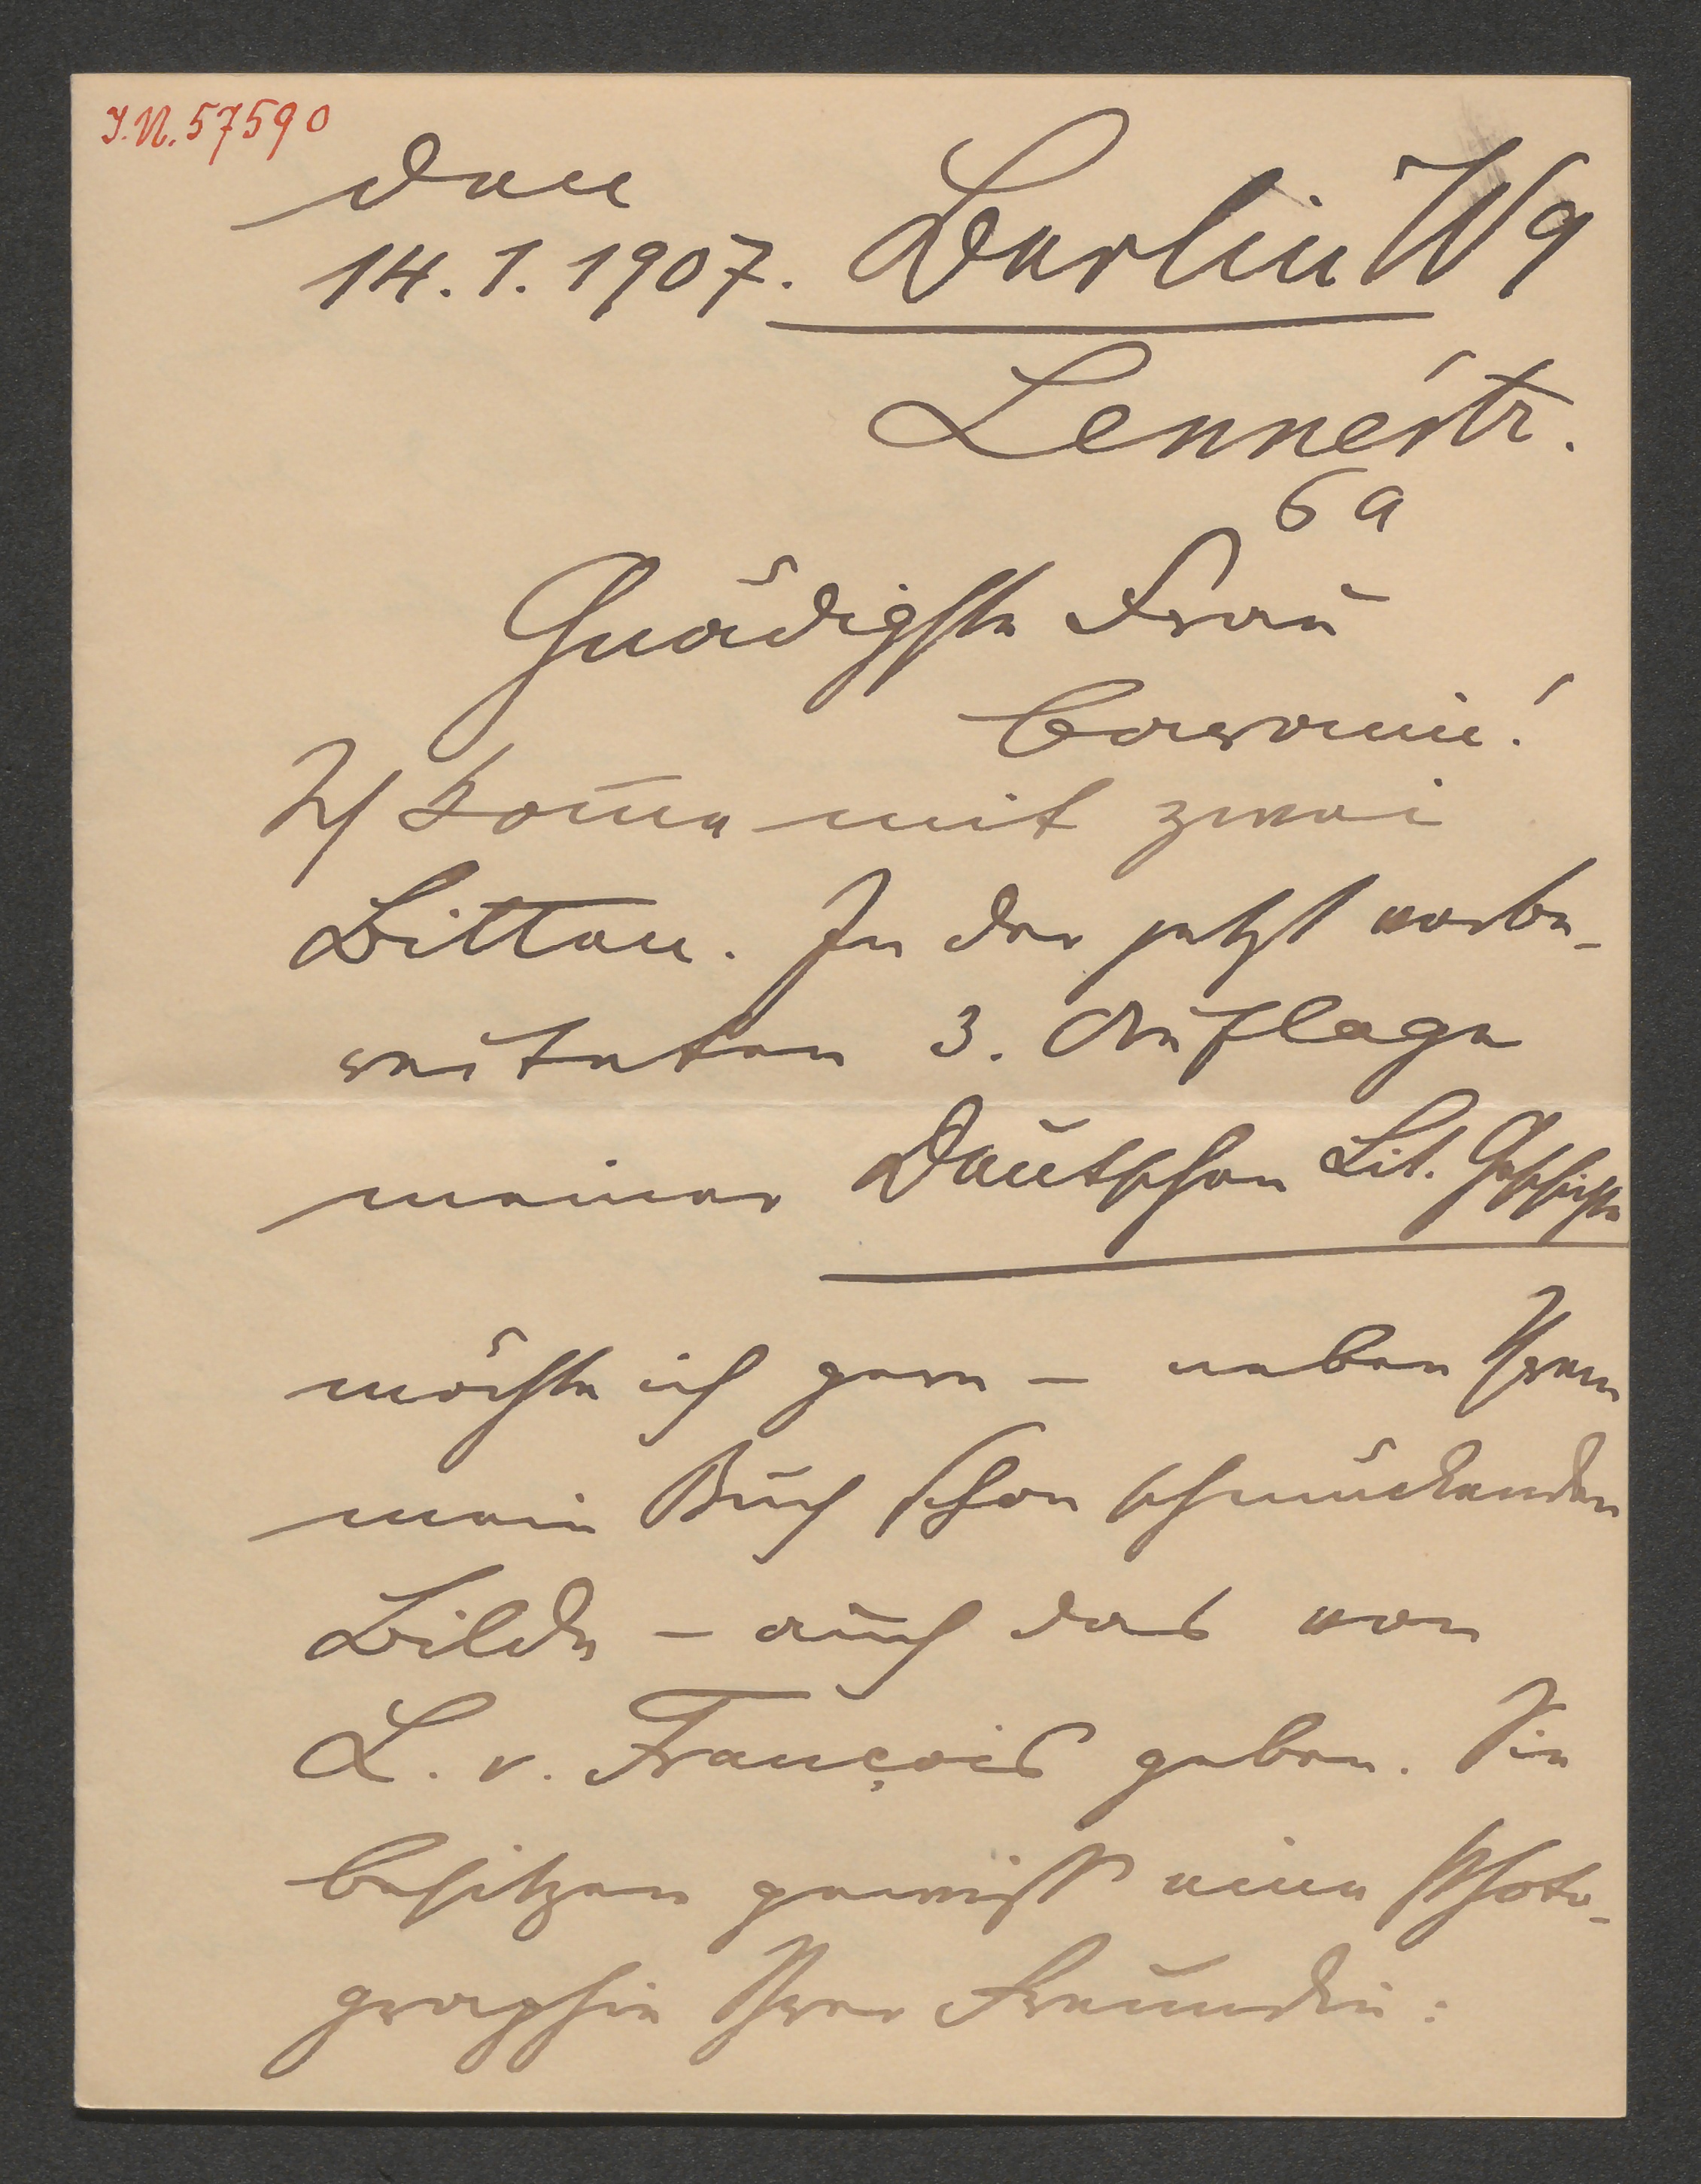 J.N. 57590
den
14. 1. 1907. Berlin W 9
Lennéstr.
6a
Gnädigste Frau
Baronin!
Ich kom̄e mit zwei
Bitten. In der jetzt vorbe-
reiteten 3. Auflage
meiner Deutschen Lit. Geschichte
möchte ich gern – neben Ihrem
mein Buch schon schmückenden
Bilde – auch das von
L. v. François geben. Sie
besitzen gewiss eine Photo-
graphie Ihrer Freundin: